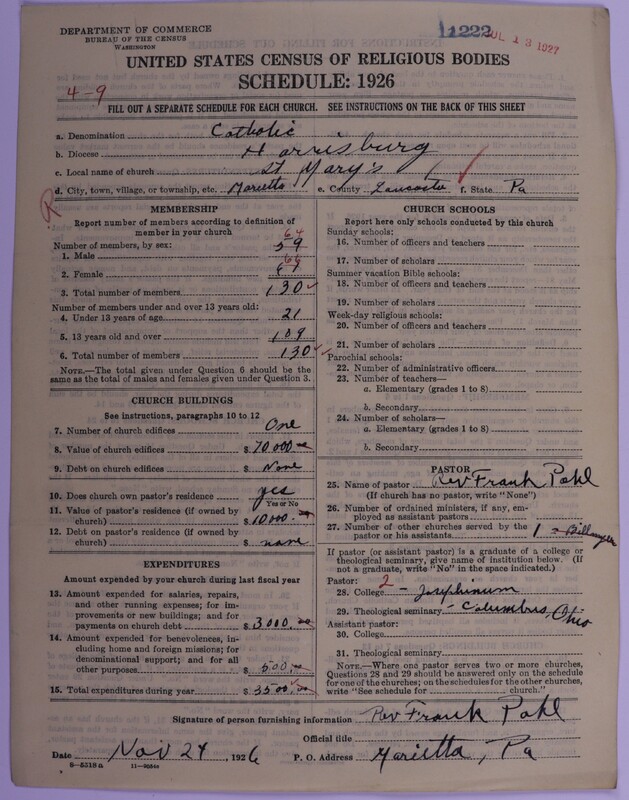 DEPARTMENT OF COMMERCE
BUREAU OF THE CENSUS
WASHINGTON
11222 JUL 13 1927
UNITED STATES CENSUS OF RELIGIOUS BODIES
SCHEDULE: 1926
4-9
FILL OUT A SEPARATE SCHEDULE FOR EACH CHURCH. SEE INSTRUCTIONS ON THE BACK OF THIS SHEET
a. Denomination Catholic
b. Diocese Harrisburg
c. Local name of church St Mary's
d. City, town, village, or township, etc. Marietta e. County Lancaster f. State Pa
R
MEMBERSHIP
Report number of members according to definition of
member in your church
Number of members, by sex:
1. Male 59 64
2. Female 66
3. Total number of members 130
Number of members under and over 13 years old:
4. Under 13 years of age 21
5. 13 years old and over 109
6. Total number of members 130
NOTE.—The total given under Question 6 should be
the same as the total of males and females given under Question 3.
CHURCH BUILDINGS
See instructions, paragraphs 10 to 12
7. Number of church edifices One
8. Value of church edifices $ 70000.00
9. Debt on church edifices $ None
10. Does church own pastor's residence yes
Yes or No
11. Value of pastor's residence (if owned by
church) $ 10000.00
12. Debt on pastor's residence (if owned by
church) $ none
EXPENDITURES
Amount expended by your church during last fiscal year
13. Amount expended for salaries, repairs,
and other running expenses; for im-
provements or new buildings; and for
payments on church debt $ 3000.00
14. Amount expended for benevolences, in-
cluding home and foreign missions; for
denominational support; and for all
other purposes $ 500.00
15. Total expenditures during year $ 3500.00
CHURCH SCHOOLS
Report here only schools conducted by this church
Sunday schools:
16. Number of officers and teachers
17. Number of scholars
Summer vacation Bible schools:
18. Number of officers and teachers
19. Number of scholars
Week-day religious schools:
20. Number of officers and teachers
21. Number of scholars
Parochial schools:
22. Number of administrative officers
23. Number of teachers—
a. Elementary (grades 1 to 8)
b. Secondary
24. Number of scholars—
a. Elementary (grades 1 to 8)
b. Secondary
PASTOR
25. Name of pastor Rev Frank Pohl
(If church has no pastor, write "None")
26. Number of ordained ministers, if any, em-
ployed as assistant pastors
27. Number of other churches served by the
pastor or his assistants 1 -
If pastor (or assistant pastor) is a graduate of a college or
theological seminary, give name of institution below. (If
not a graduate, write "No" in the space indicated.)
Pastor: 2
28. College - Josephinum
29. Theological seminary - Columbus, Ohio
Assistant pastor:
30. College
31. Theological seminary
NOTE.—Where one pastor serves two or more churches,
Questions 28 and 29 should be answered only on the schedule
for one of the churches; on the schedules for the other churches,
write "See schedule for church."
Signature of person furnishing information Rev Frank Pohl
Official title
Date Nov 24, 1926 P. O. Address Marietta, Pa
8-5518a